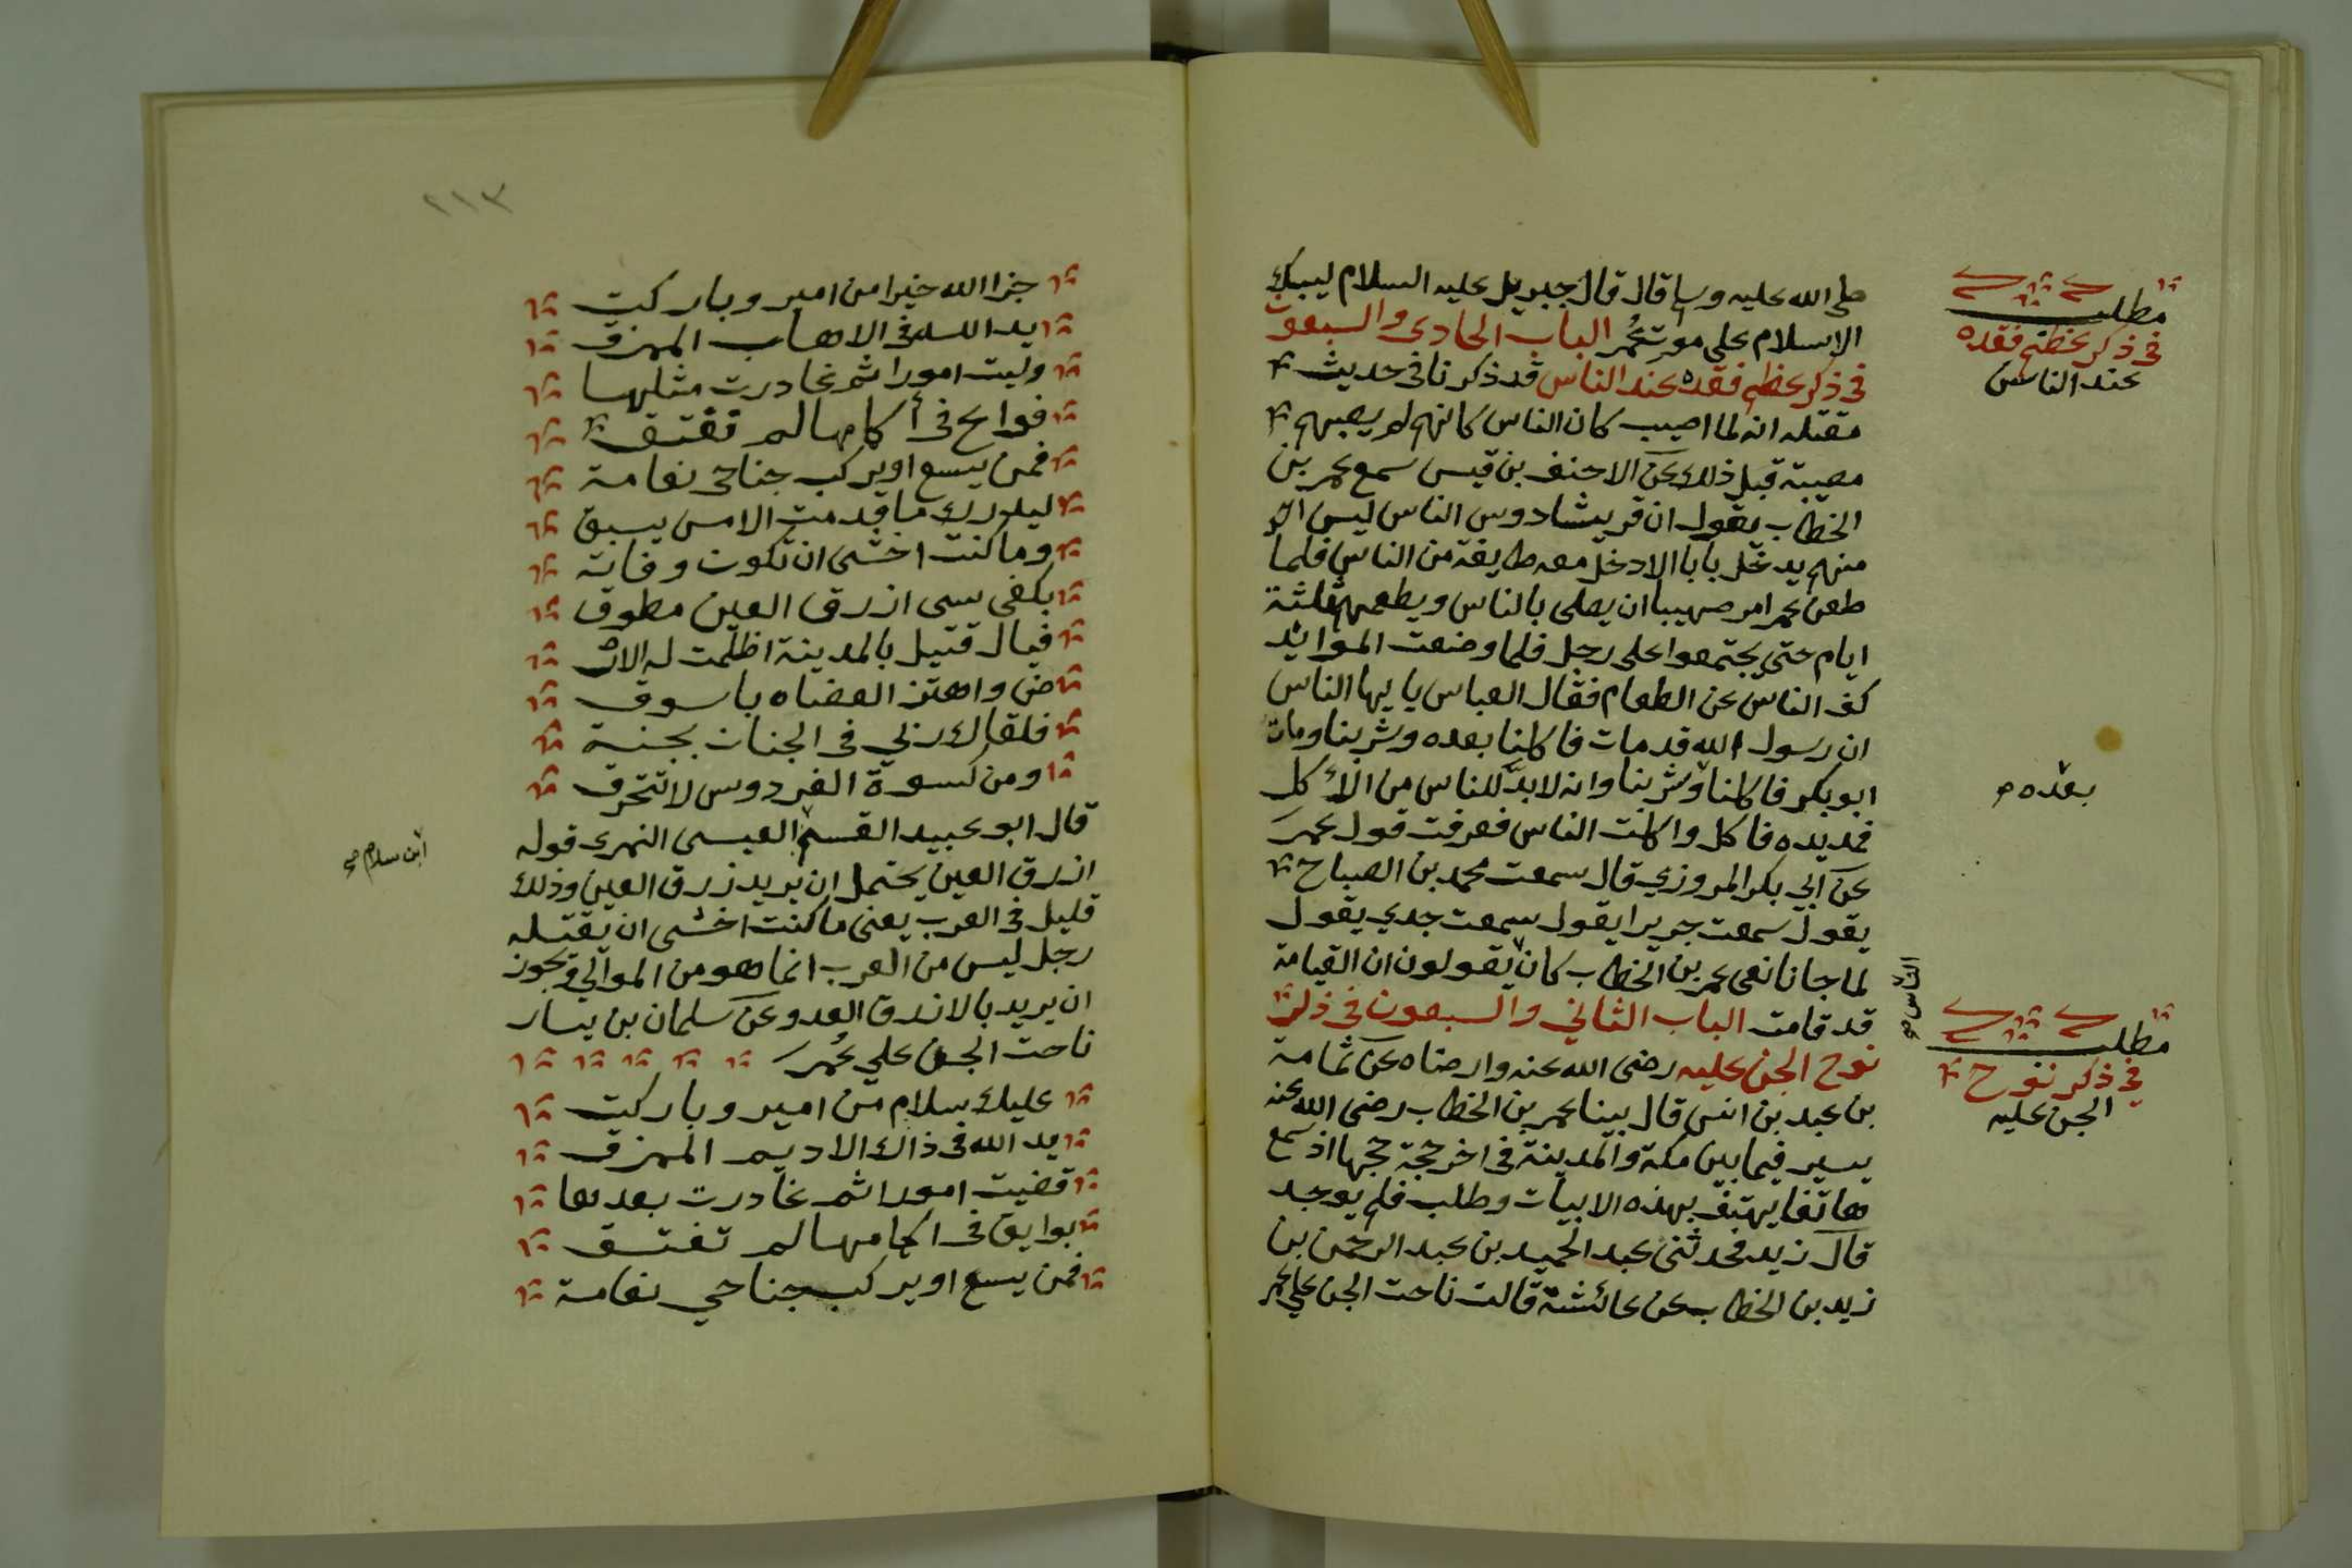 صلى الله عليه وسلم قال قال جبريل عليه السلام ليبك
الاسلام على موت عُمر الباب الحادى والسبعون
فى ذكر عظم فقده عند الناس قد ذكرنا فى حديث
مقتله انه لما اصيب كان الناس كانهم لم يصبهم
مصيبة قبل ذلك عن الاحنف بن قيس سمع عمر بن
الخطاب يقول ان قريشا روس الناس ليس احد
منهم يدخل بابا الا دخل معه طايفة من الناس فلما
طعن عمر امر صهيبا ان يصلى بالناس ويطعمهم ثلثة
ايام حتى يجتمعوا على رجل فلما وضعت الموائد
كف الناس عن الطعام فقال العباس يا يها الناس
ان رسول الله قد مات فاكلنا بعده وشربنا ومات
ابو بكر فاكلنا وشربنا وانه لابد للناس من الاكل
فمد يده فاكل واكلت الناس فعرفت قول عمر
عن ابي بكر المروزي قال سمعت محمد بن الصباح
يقول سمعت جريرا يقول سمعت جدي يقول
لما جانا نعى عمر بن الخطاب كان يقولون ان القيامة
قد قامت الباب الثاني والسبعون فى ذكر
نوح الجن عليه رضى الله عنه وارضاه عن ثمامة
بن عبد بن انس قال بينا عمر بن الخطاب رضى الله عنه
يسير فيما بين مكة والمدينة فى اخر حجة حجها اذ سمع
هاتفا يهتف بهذه الابيات وطلب فلم يوجد
قال زيد فحدثنى عبد الحميد بن عبد الرحمن بن
زيد بن الخطاب عن عائشة قالت ناحت الجن على عمر
مطلب
فى ذكر عظم فقده
عند الناس
بعده
الناس
مطلب
فى ذكر نوح
الجن عليه
٢١٣
جزا الله خيرا من امير وباركت
يد الله فى الاهاب الممزق
وليت امورا ثم غادرت مثلها
فوايح فى أكامها لم تفتق
فمن يسع او يركب جناحى نعامة
ليدرك ما قدمت الامس يسبق
وما كنت اخشى ان تكون وفاته
بكفى سبى ازرق العين مطوق
فيال قتيل بالمدينة اظلمت له الار
ض واهتز العضاه باسوق
فلقاك ربي فى الجنات بجنية
ومن كسوة الفردوس لا تتحرق
قال ابو عبيد القسم العيسى النهرى قوله
ازرق العين يحتمل ان يريد زرق العين وذلك
قليل فى العرب يعنى ما كنت اخشى ان يقتله
رجل ليس من العرب انما هو من الموالي ويجوز
ان يريد بالازرق العدو عن سلمان بن يسار
ناحت الجن علي عُمر
عليك سلام من امير وباركت
يد الله فى ذاك الاديم الممزق
قضيت امورا ثم غادرت بعدها
بوايق فى اكمامها لم تفتق
فمن يسع او يركب جناحي نعامة
ابن سلام